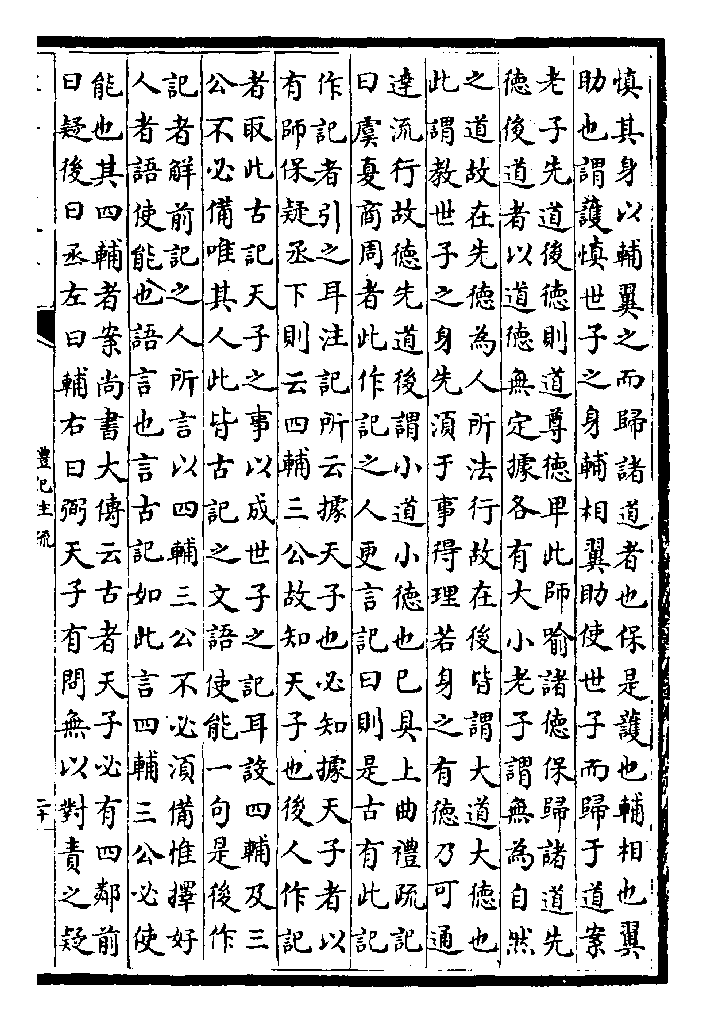 慎其身以輔翼之而歸諸道者也保是護也輔相也翼
助也謂護慎世子之身輔相翼助使世子而歸于道案
老子先道後德則道尊德卑此師喻諸德保歸諸道先
德後道者以道德無定據各有大小老子謂無為自然
之道故在先德為人所法行故在後皆謂大道大德也
此謂教世子之身先須于事得理若身之有德乃可通
達流行故德先道後謂小道小德也已具上曲禮疏記
曰虞夏商周者此作記之人更言記曰則是古有此記
作記者引之耳注記所云據天子也必知據天子者以
有師保疑丞下則云四輔三公故知天子也後人作記
者取此古記天子之事以成世子之記耳設四輔及三
公不必備唯其人此皆古記之文語使能一句是後作
記者解前記之人所言以四輔三公不必須備惟擇好
人者語使能也語言也言古記如此言四輔三公必使
能也其四輔者案尚書大傳云古者天子必有四鄰前
曰疑後曰丞左曰輔右曰弼天子有問無以對責之疑
禮記注疏
二十